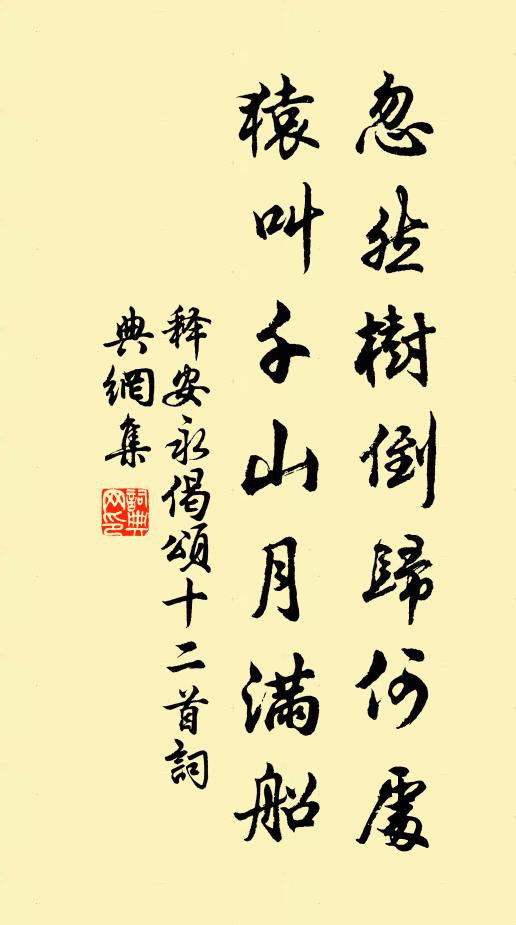 忽然樹倒歸何處
猿叫千山月滿船
释安永偈頌十二首詞
典網集
詞典
网印